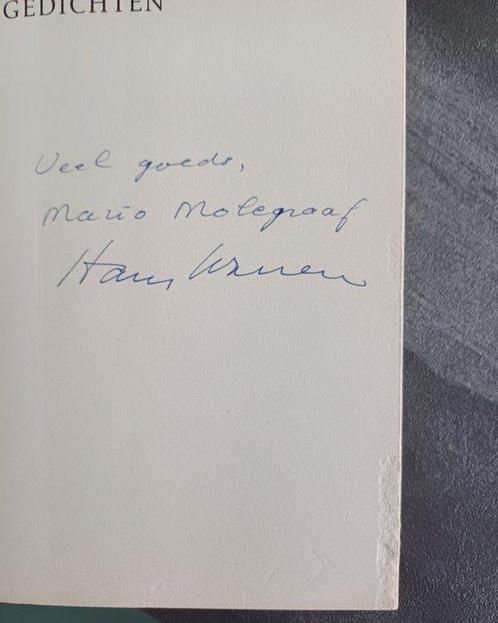 GEDICHTEN
Veel goeds,
Mario Molegraaf
Hans Warren